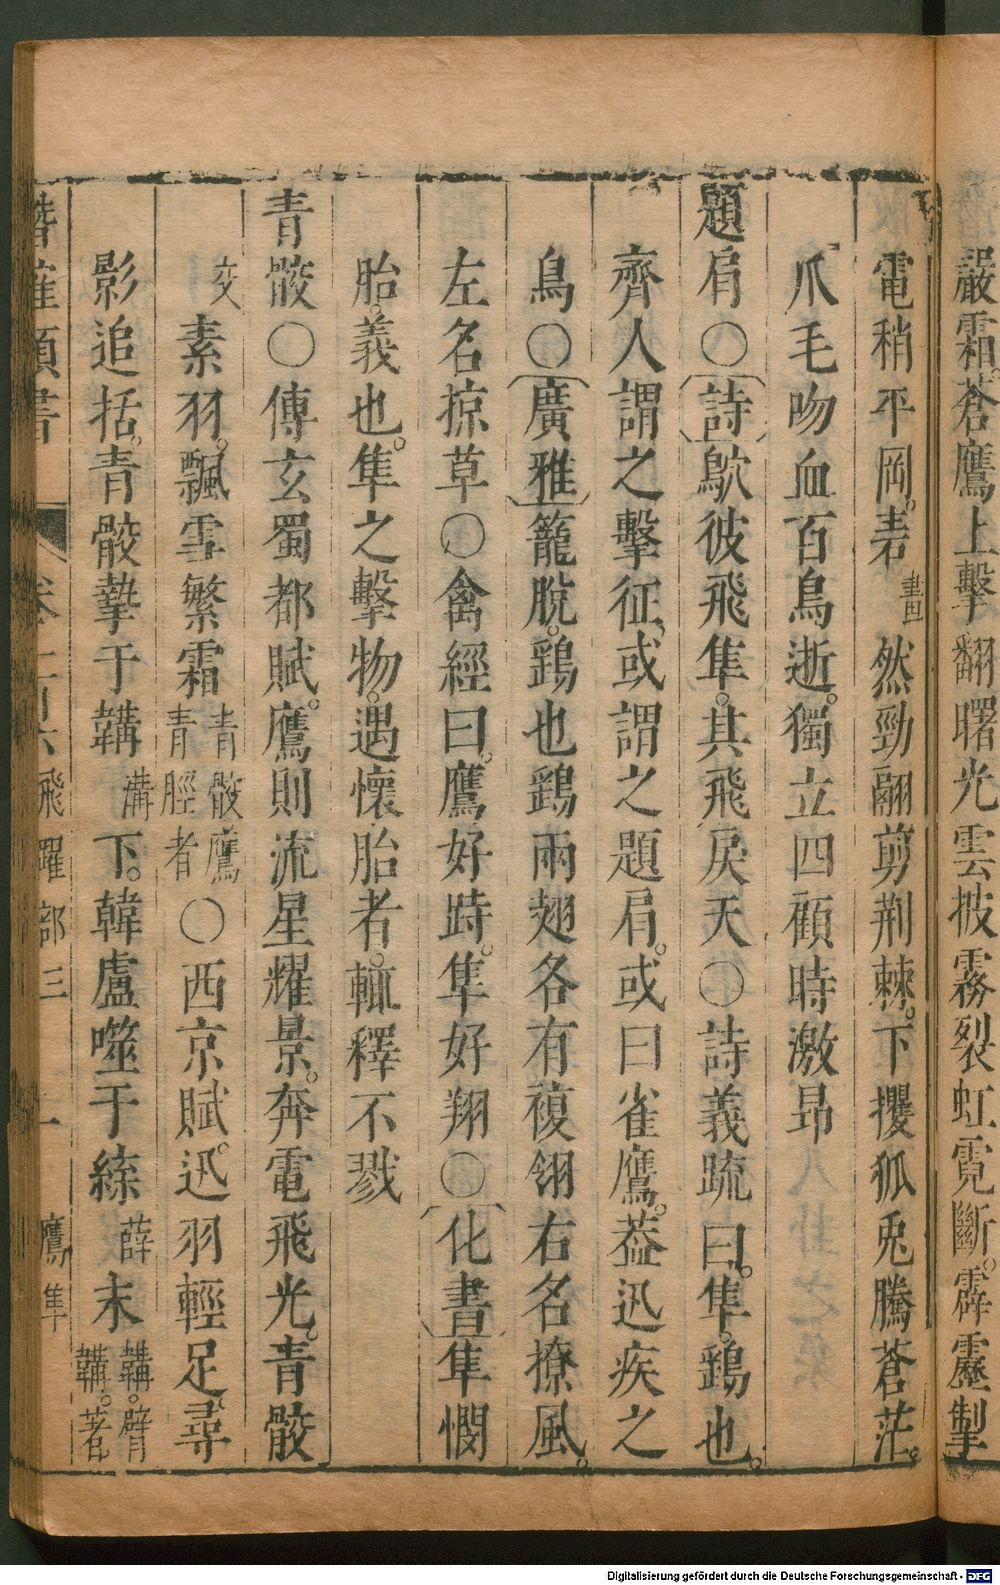 嚴霜。蒼鷹上擊翻曙光雲披霧裂虹霓斷。霹靂掣
電稍平岡。砉畫然勁翮剪荆棘。下攫狐兎騰蒼茫。
爪毛吻血百鳥逝。獨立四顧時激昻
題肩○詩鴥彼飛隼。其飛戾天○詩義疏曰。隼。鷂也。
齊人謂之擊征。或謂之題肩。或曰雀鷹。葢迅疾之
鳥○廣雅籠脫。鷂也鷂兩翅各有複翎右名撩風。
左名掠草○禽經曰。鷹好畤。隼好翔○化書隼憫
胎。義也。隼之擊物。遇懷胎者。輒釋不戮
青骹○傳玄蜀都賦。鷹則流星耀景。奔電飛光。青骹
交素羽。飄雪繁霜青骹鷹青脛者○西京賦。迅羽輕足。尋
影追括。青骹摯于韝溝下。韓盧噬于緤薛末韝。臂韝。著
潛確類書
飛躍部三
鷹隼
Digitalisierung gefördert durch die Deutsche Forschungsgemeinschaft - DFG